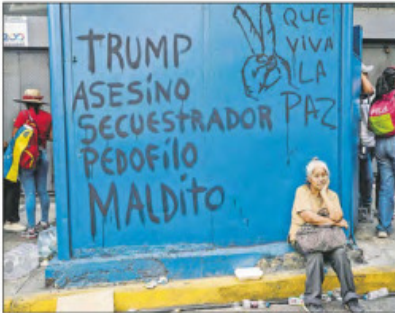 TRUMP
ASESINO
SECUESTRADOR
PEDOFILO
MALDITO
QUE
VIVA
LA
PAZ